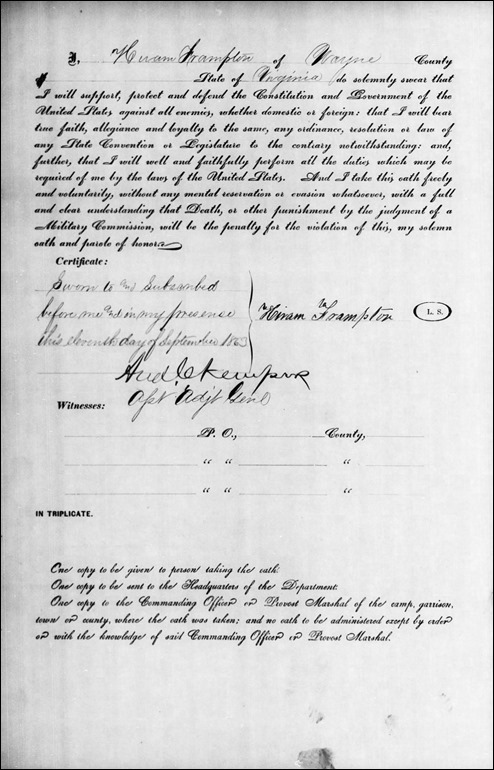 I, Hiram Frampton of Wayne County
State of Virginia do solemnly swear that
I will support, protect and defend the Constitution and Government of the
United States against all enemies, whether domestic or foreign: that I will bear
true faith, allegiance and loyalty to the same, any ordinance, resolution or law of
any State Convention or Legislature to the contrary notwithstanding: and,
further, that I will well and faithfully perform all the duties which may be
required of me by the laws of the United States. And I take this oath freely
and voluntarily, without any mental reservation or evasion whatsoever, with a full
and clear understanding that Death, or other punishment by the judgment of a
Military Commission, will be the penalty for the violation of this, my solemn
oath and parole of honor.
Certificate:
Sworn to and Subscribed
before me and in my presense
this eleventh day of September 1863
Hiram Frampton
L. S.
Asst Adjt Genl
Witnesses:
P. O., County,
" " "
" " "
IN TRIPLICATE.
One copy to be given to person taking the oath.
One copy to be sent to the Headquarters of the Department.
One copy to the Commanding Officer or Provost Marshal of the camp, garrison,
town or county, where the oath was taken; and no oath to be administered except by order
or with the knowledge of said Commanding Officer or Provost Marshal.